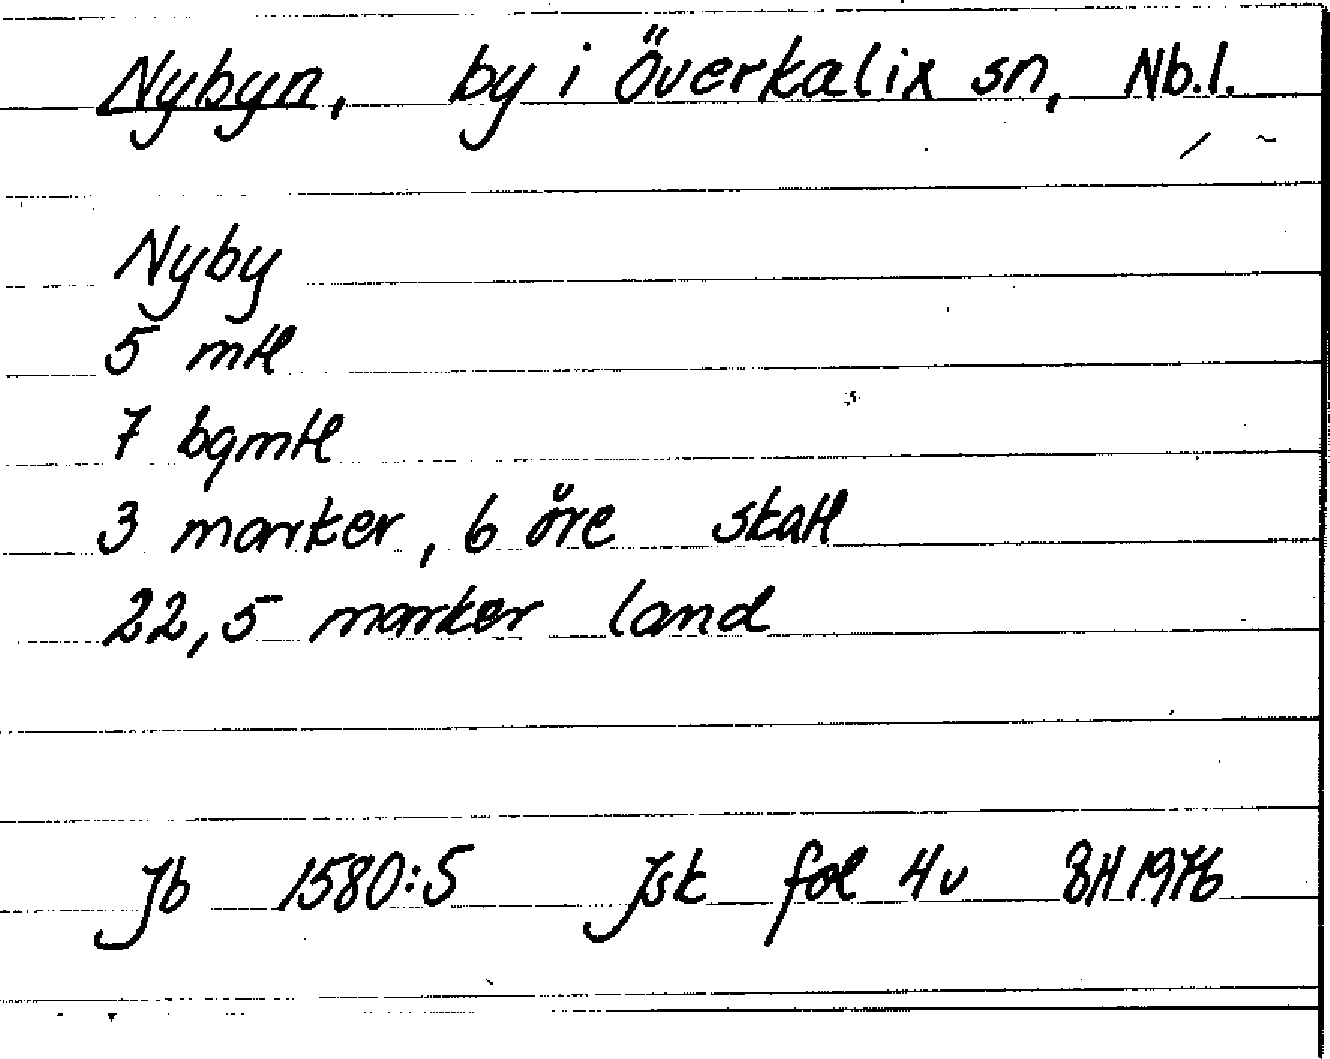 Nybyn, by i Överkalix sn, Nb.l.
Nyby
5 mtl
7 bgmtl
3 marker, 6 öre skatt
22,5 marker land
Jb 1580:5 Jsk fol 4v